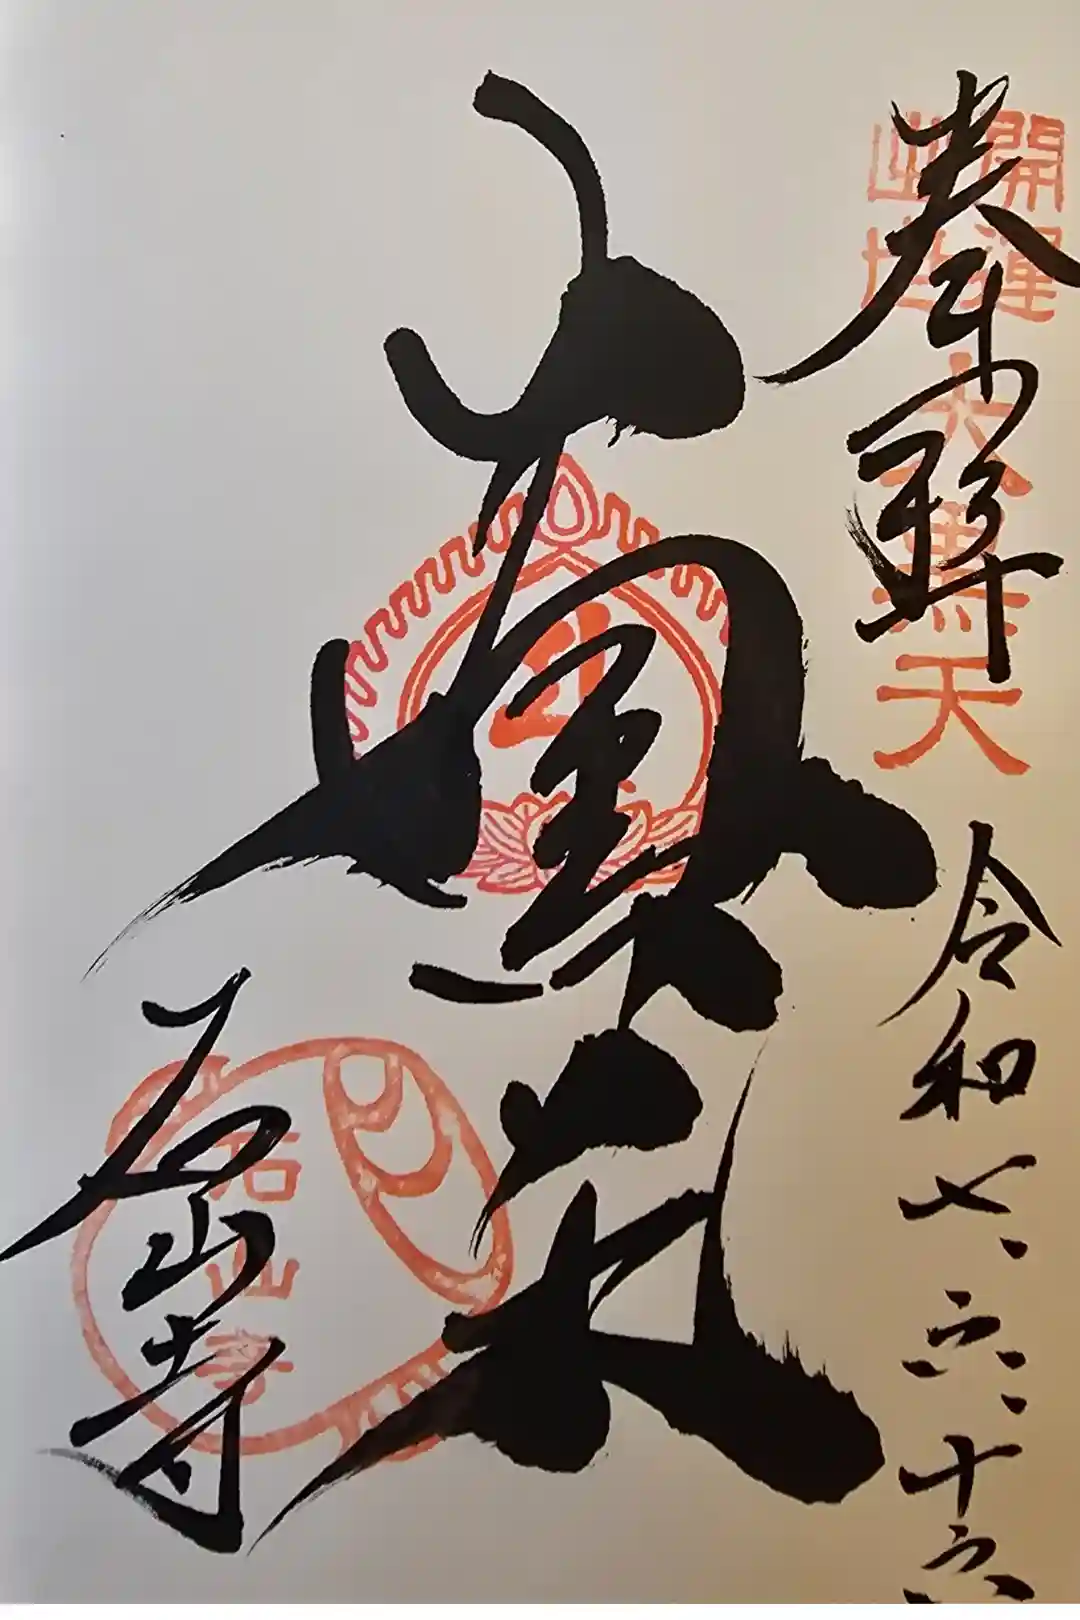 奉拝
開運
出世
大黒天
令和七、六、十六
大黒天
石山寺
石山寺